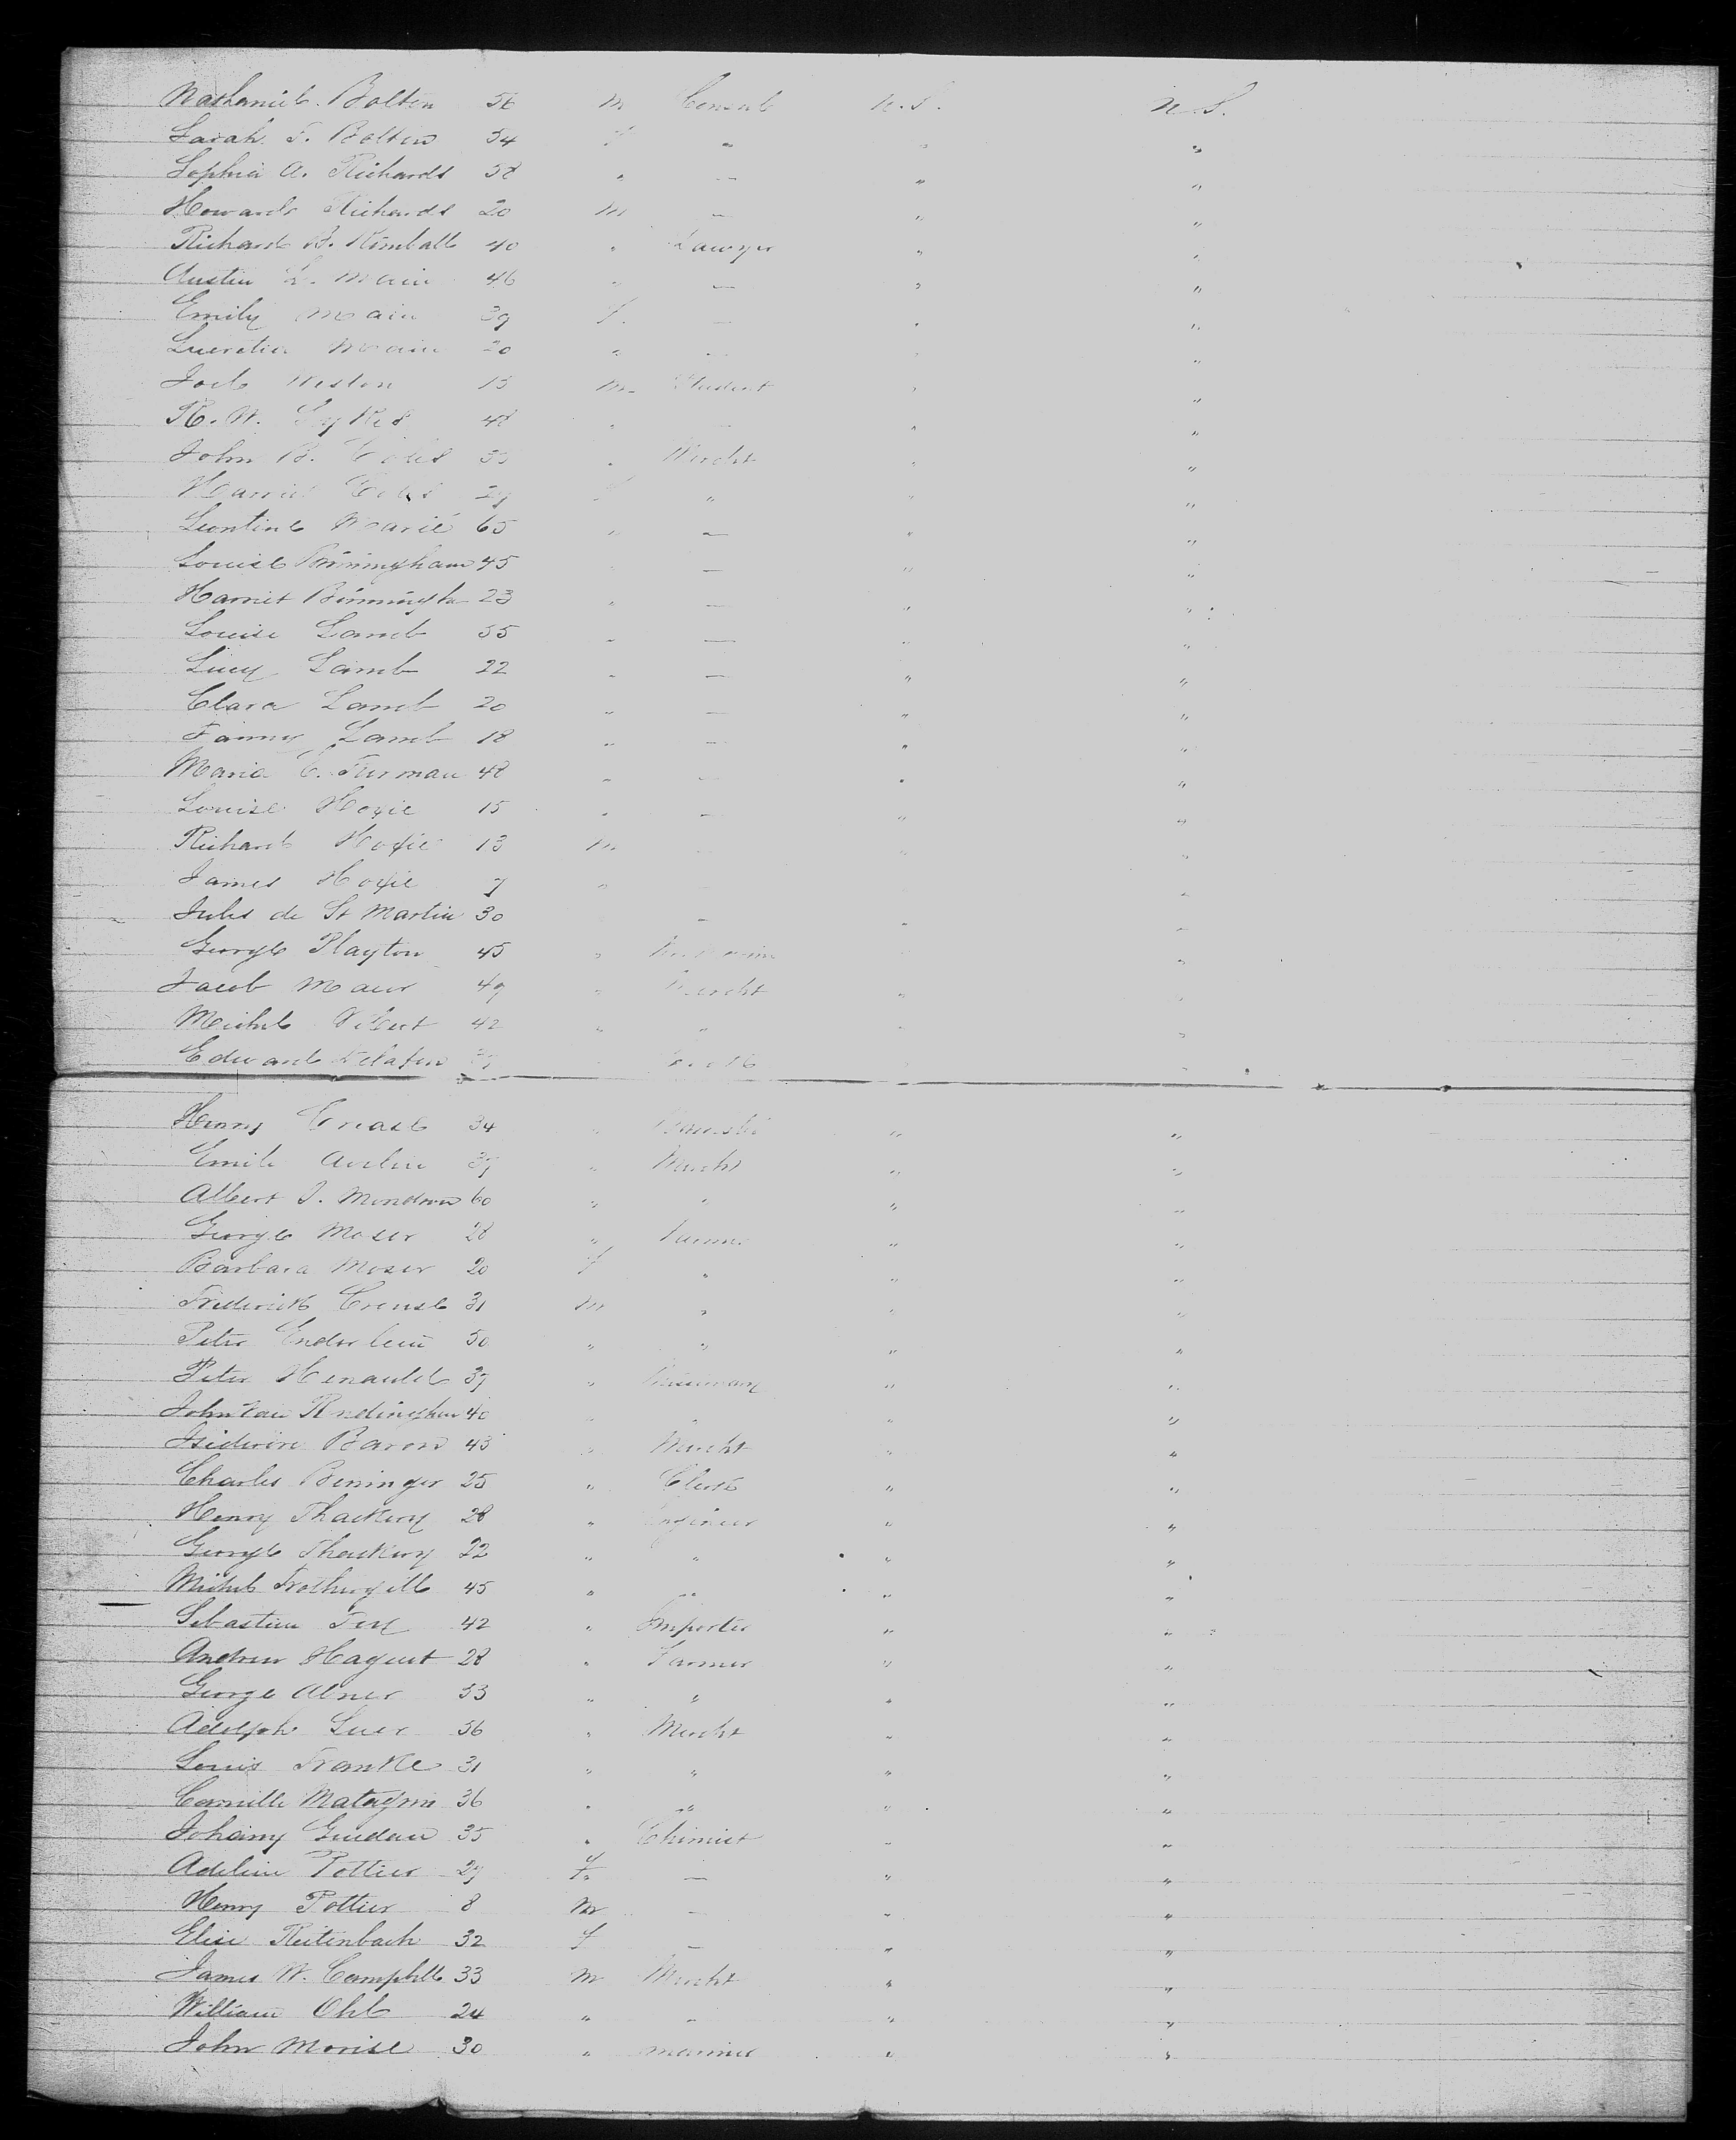 Nathaniel Bolton 56 m Consul U.S. U.S.
Sarah T. Bolton 34 f " " "
Sophia A. Richards 58 " — " "
Howard Richards 20 m — " "
Richard B. Kimball 40 " Lawyer " "
Austin L. Main 46 " — " "
Emily Main 39 f. — " "
Lucretia Main 20 " — " "
Joel Weston 13 m Student " "
R. W. Sykes 48 " — " "
John B. Coles " Mercht " "
Harriet Coles 29 f " " "
Leontine Marié 65 " — " "
Louise Birmingham 45 " — " "
Harriet Birmingh 23 " — " "
Louise Lamb 55 " — " "
Lucy Lamb 22 " — " "
Clara Lamb 20 " — " "
Fanny Lamb 18 " — " "
Maria C. Furman 48 " — " "
Louise Hoxie 15 " — " "
Richard Hoxie 13 m — " "
James Hoxie 7 " "
Jules de St Martin 30 — " "
George Playton 45 " "
Jacob Maur 49 " Mercht " "
Michel 42 " " " "
Edward
Henry Crease 34 " " "
Emile 37 " Mercht " "
Albert J. 60 " " " "
George Moser 28 " Farmer " "
Barbara Moser 20 f " " "
Frederick Crouse 31 m " " "
Peter Enderlein 50 " " " "
Peter Henauld 37 " Missionary " "
John Van 40 " " " "
Isidore Baron 43 " Mercht " "
Charles Beninger 25 " Clerk " "
Henry Thackery 28 " Engineer " "
George Thackery 22 " " " "
Michel Frothergill 45 " " " "
Sebastien Fey 42 " Importer " "
Andrew Haguet 28 " Farmer " "
George Abner 33 " " " "
Adolph Luer 36 " Mercht " "
Louis Franke 31 " " " "
Camille Matagrin 36 " " " "
Johanny 35 " Chimist " "
Adeline Pottier 27 f. — " "
Henry Pottier 8 m — " "
Elise Reitenbach 32 f — " "
James W. Campbell 33 m Mercht " "
William Ohl 24 " " " "
John Morise 30 " mariner " "